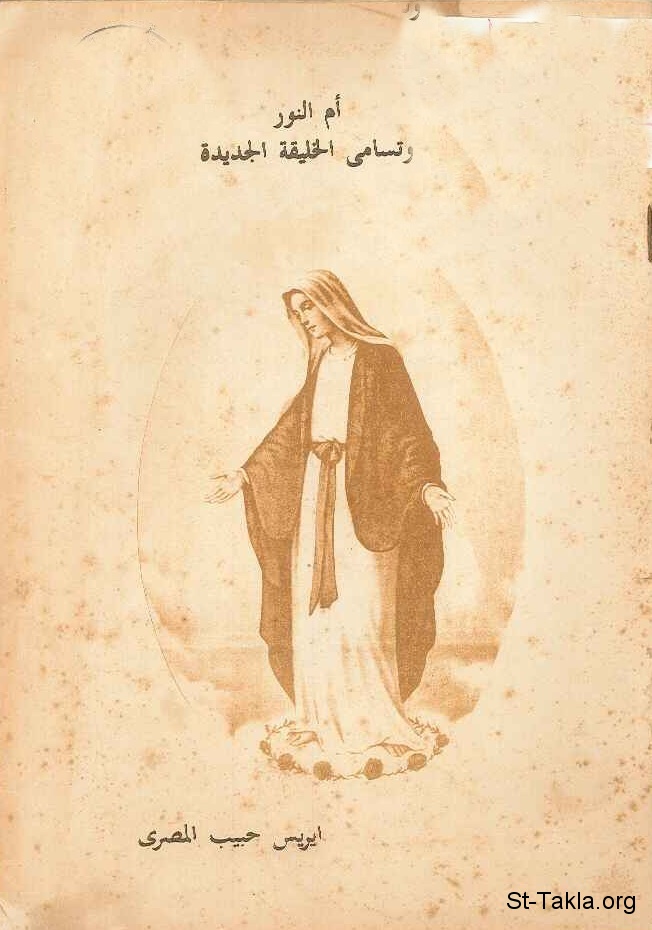 أم النور
وتسامى الخليقة الجديدة
ايريس حبيب المصرى
St-Takla.org